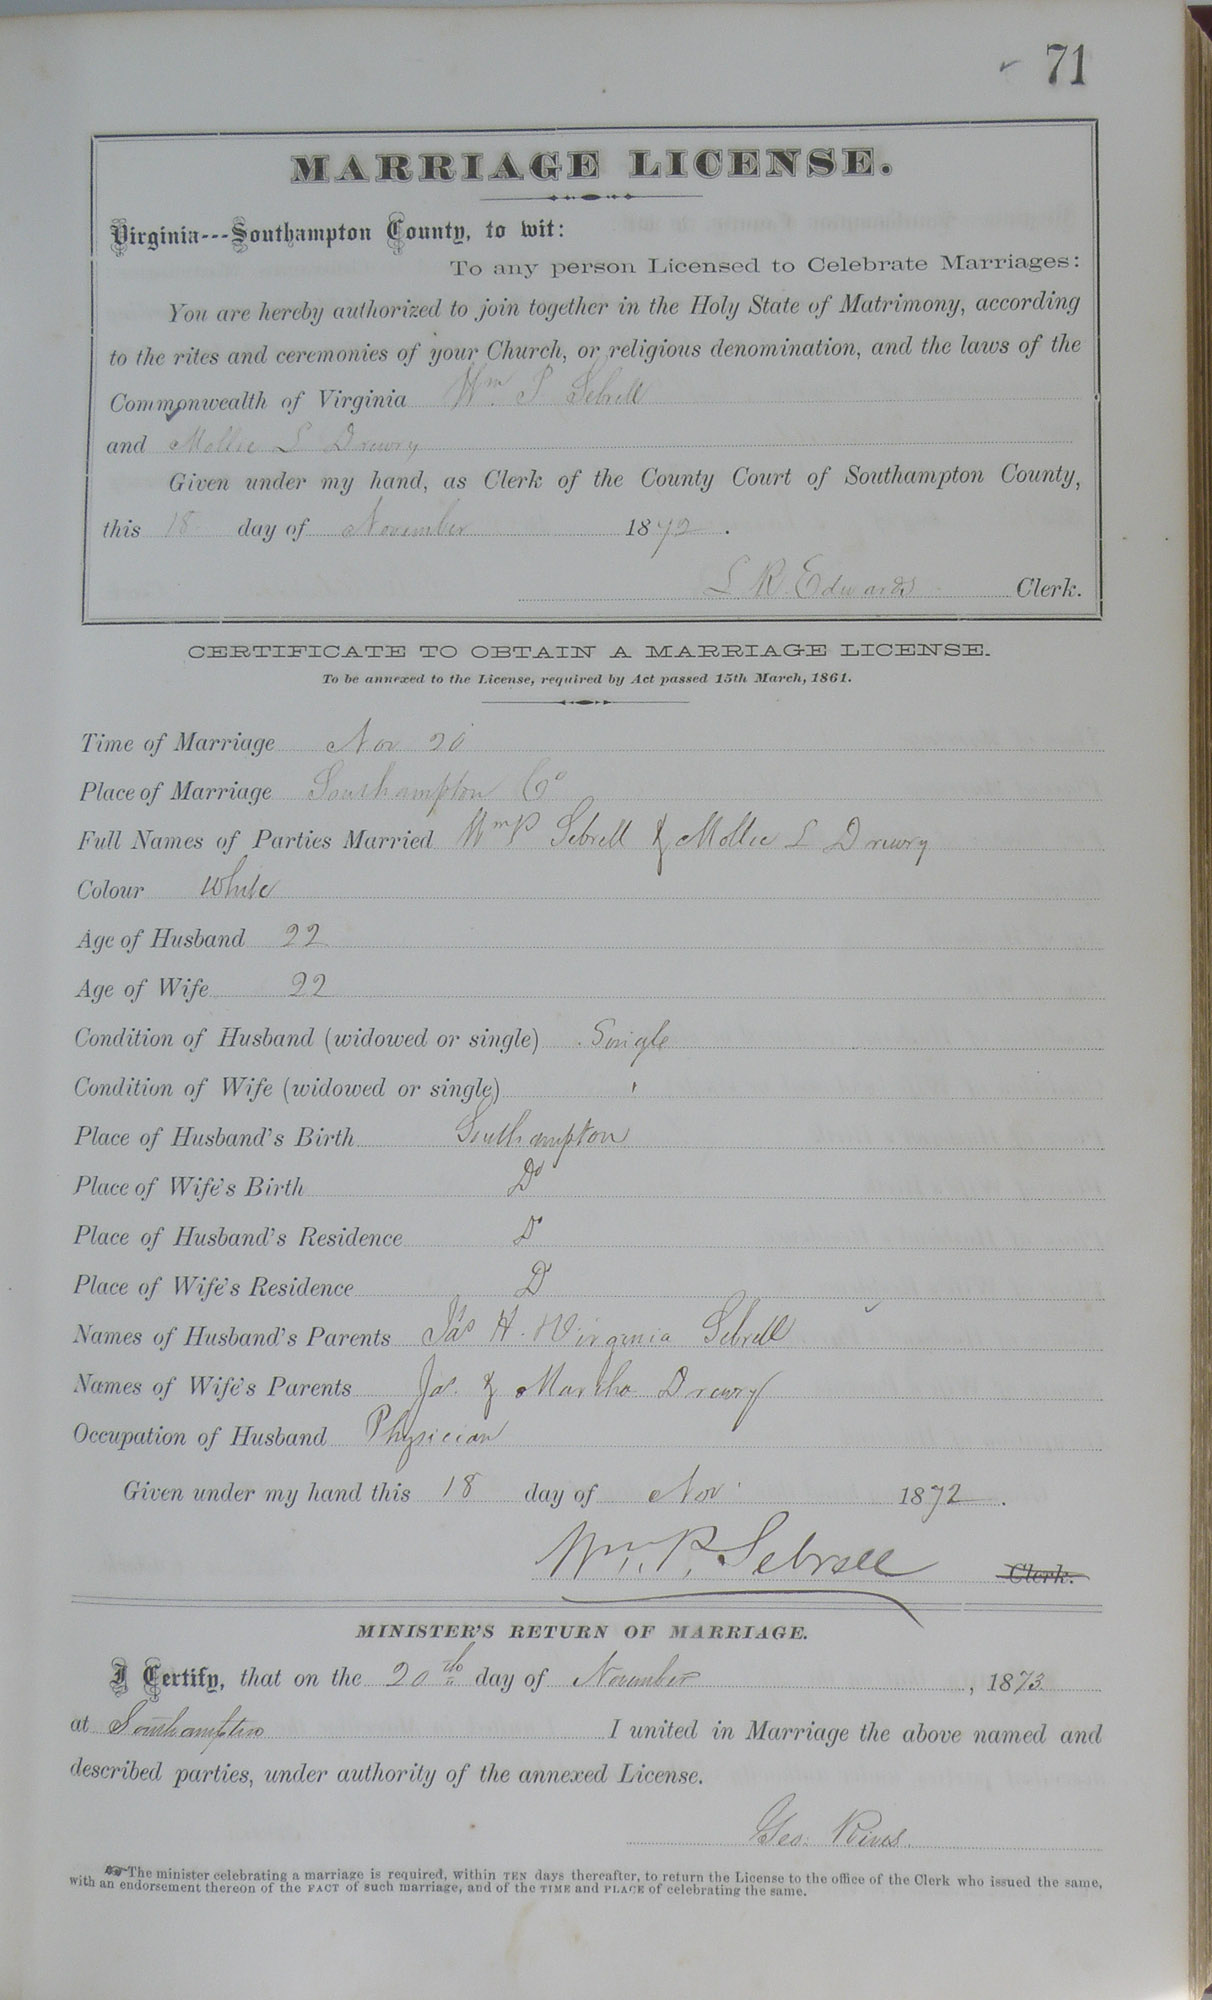 71
MARRIAGE LICENSE.
Virginia---Southampton County, to wit:
To any person Licensed to Celebrate Marriages:
You are hereby authorized to join together in the Holy State of Matrimony, according
to the rites and ceremonies of your Church, or religious denomination, and the laws of the
Commonwealth of Virginia Wm. P Sebrell
and Mollie L Drewry
Given under my hand, as Clerk of the County Court of Southampton County,
this 18 day of November 1872.
L R. Edwards Clerk.
CERTIFICATE TO OBTAIN A MARRIAGE LICENSE.
To be annexed to the License, required by Act passed 15th March, 1861.
Time of Marriage Nov 20
Place of Marriage Southampton Co
Full Names of Parties Married Wm P Sebrell & Mollie L Drewry
Colour White
Age of Husband 22
Age of Wife 22
Condition of Husband (widowed or single) Single
Condition of Wife (widowed or single) '
Place of Husband's Birth Southampton
Place of Wife's Birth Do
Place of Husband's Residence Do
Place of Wife's Residence Do
Names of Husband's Parents Jas H. Virginia Sebrell
Names of Wife's Parents Jas. & Martha Drewry
Occupation of Husband Physician
Given under my hand this 18 day of Nov. 1872.
Wm. P. Sebrell Clerk.
MINISTER'S RETURN OF MARRIAGE.
I Certify, that on the 20th day of November, 1873
at Southampton I united in Marriage the above named and
described parties, under authority of the annexed License.
Geo. Rives
The minister celebrating a marriage is required, within TEN days thereafter, to return the License to the office of the Clerk who issued the same,
with an endorsement thereon of the FACT of such marriage, and of the TIME and PLACE of celebrating the same.